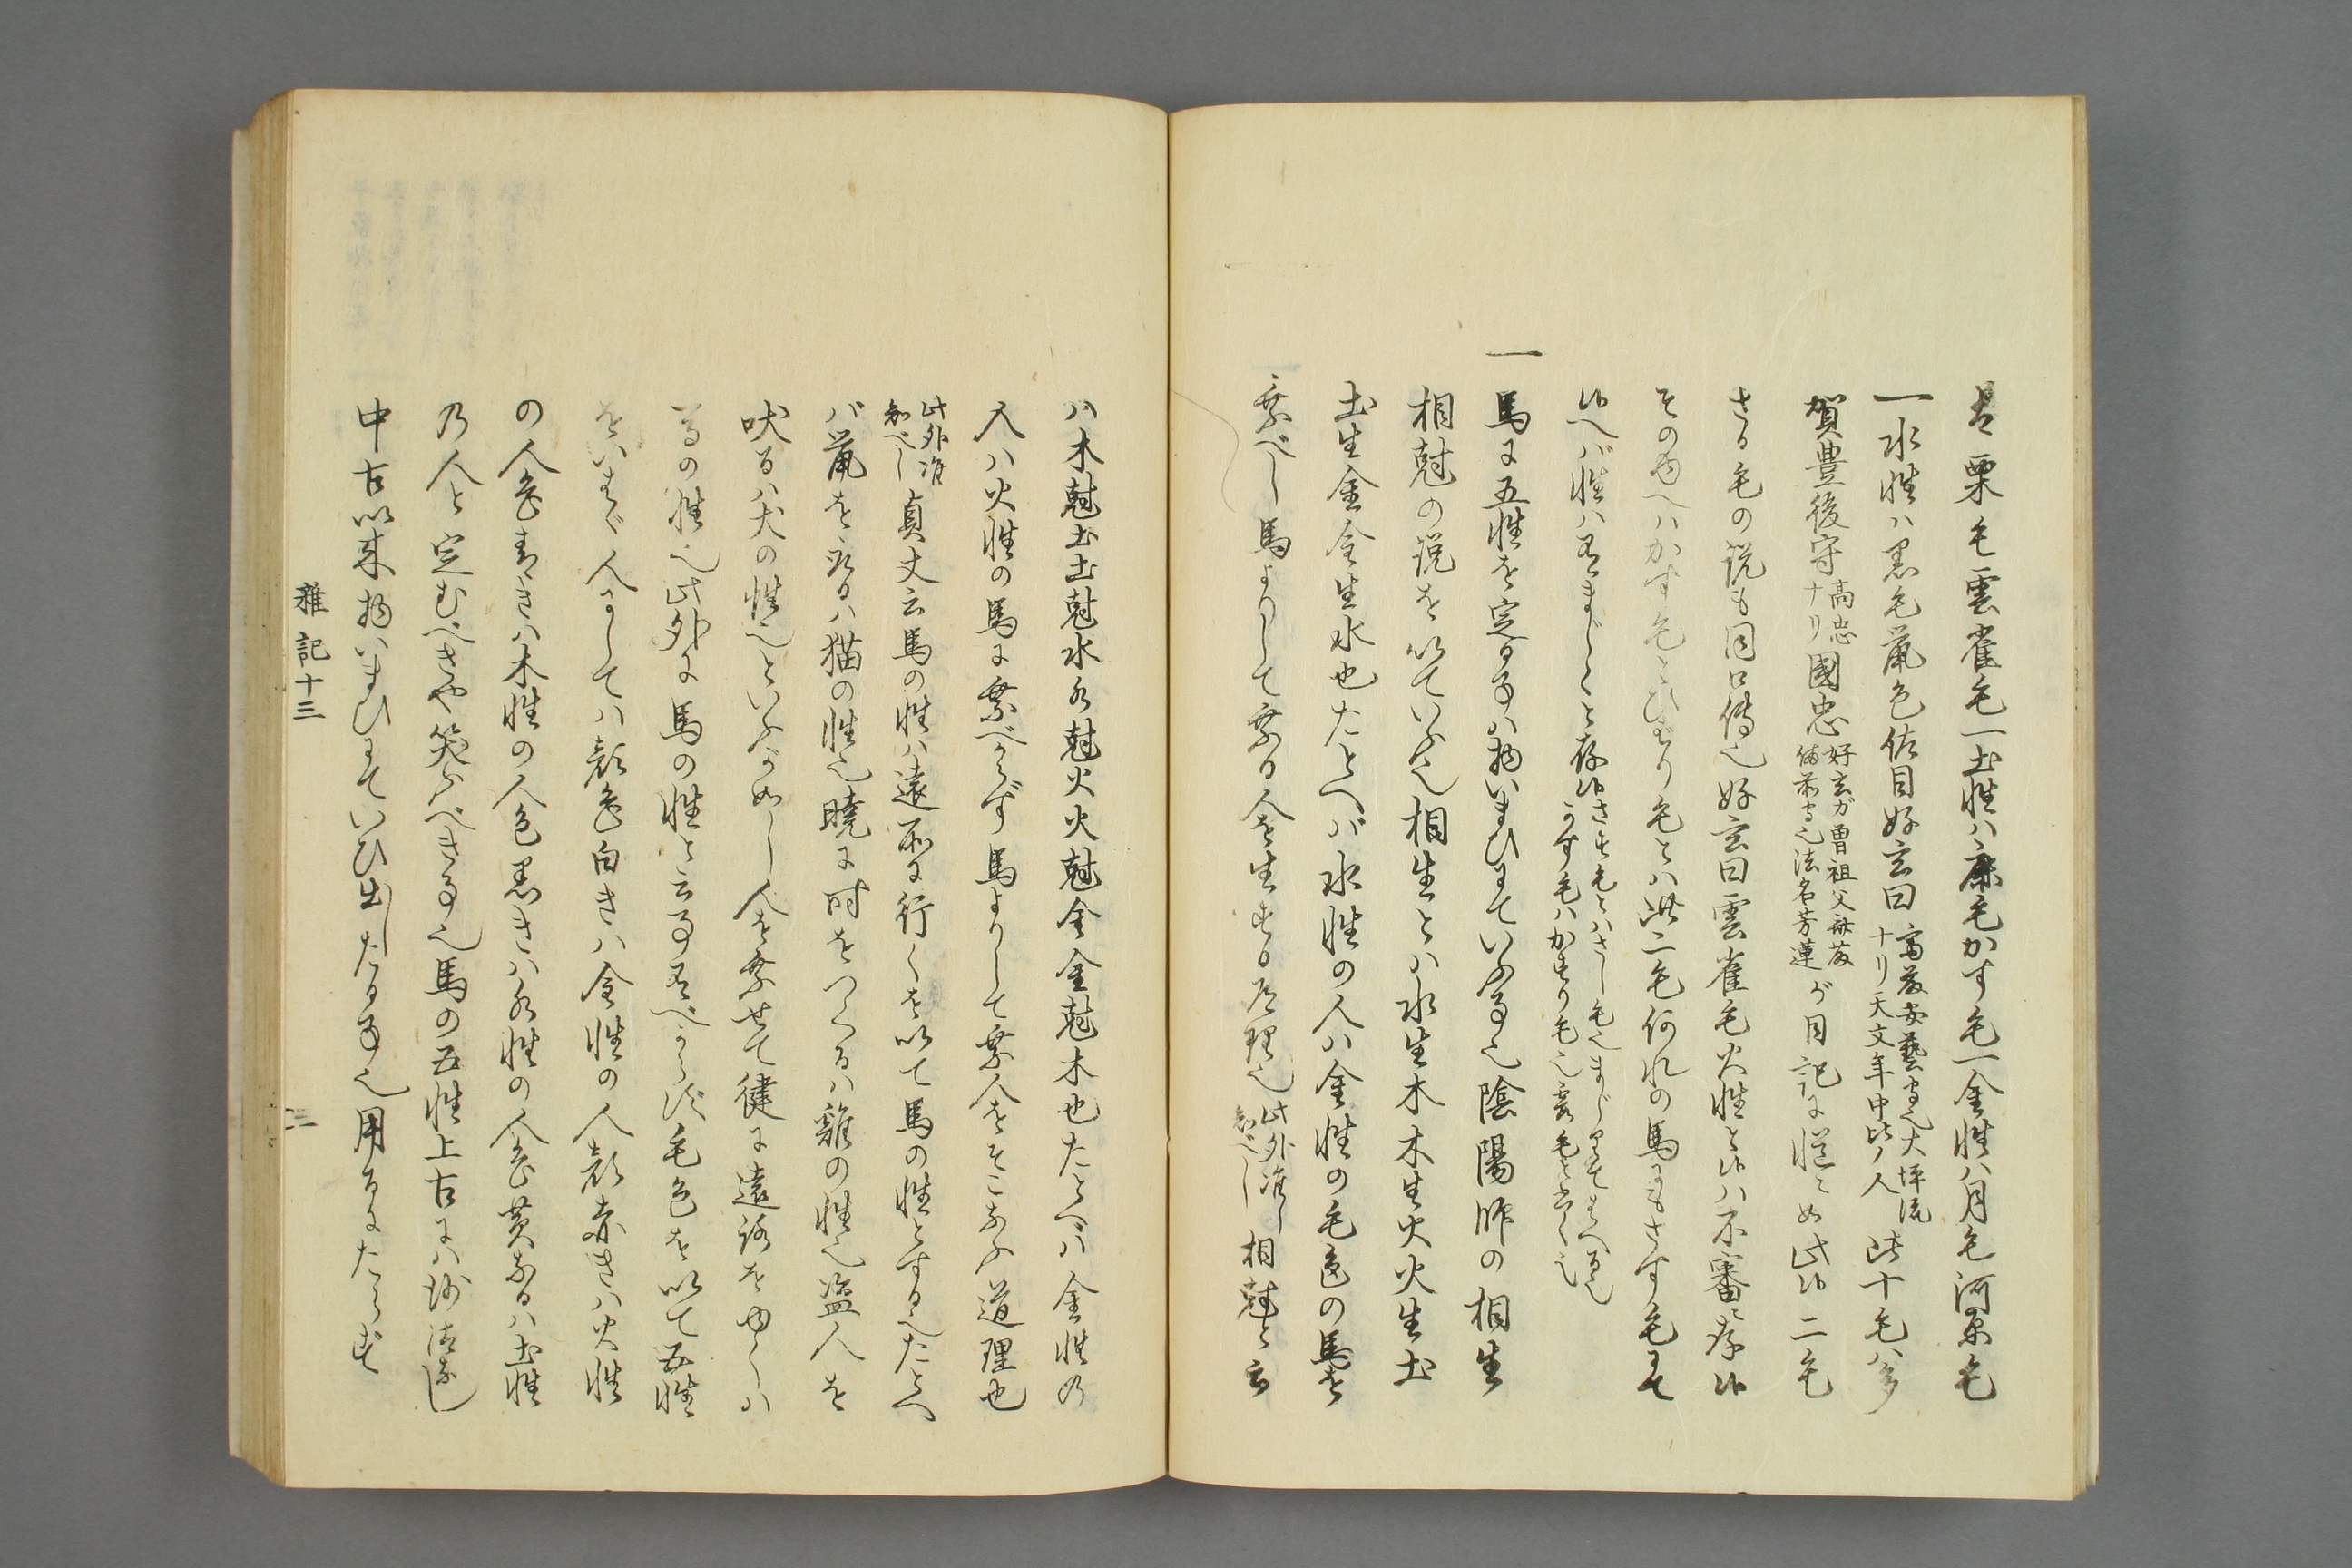 は栗毛雲雀毛一土性ハ鹿毛かす毛一金性ハ月毛河原毛
一水性ハ黒毛鼠色佐目好玄曰
齋藤安藝守之大坪流
ナリ天文年中比ノ人
此十毛ハ多
賀豊後守
高忠
ナリ
國忠
好玄ガ曽祖父齋藤
備前守之法名芳蓮
が目記に
め此以二毛
さる毛の説も同口傳也好玄曰雲雀毛火性と候ハ不審ニ存候
そのゆへハかす毛とひばり毛とハ此二毛何れの馬にもさす毛にて
候へバ性ハ有まじくと存候
一馬に五性を定る事ハ物いまひにていふ事也陰陽師の相生
相尅の説を以ていふ也相生とハ水生木木生火火生土
土生金金生水也たとへバ水性の人ハ金性の毛色の馬を
乗べし馬よりして乗る人を生ずる道理也
此外准し
知べし
相尅と云
ハ木尅土土尅水水尅火火尅金金尅木也たとへバ金性の
人ハ火性の馬に乗べからず馬よりして乗人をそこなふ道理也
此外准
知べし
貞丈云馬の性ハ遠所に行くを以て馬の性とする也たとへ
バ鼠を取るハ猫の性也曉に時をつくるハ雞の性也盗人を
吠るハ犬の性也といふが如し人を乗せて健に遠路をゆくハ
馬の性也此外に馬の性と云事有べからず毛色を以て五性
をいはゞ人にしてハ顔色白きハ金性の人顔赤きハ火性
の人色青きハ木性の人色黒きハ水性の人色黄なるハ土性
乃人と定むべきや笑ふべき事也馬の五性上古にハ沙汰なし
中古以来物いまひにていひ出したる事也用るにたらず
雜記十三
三